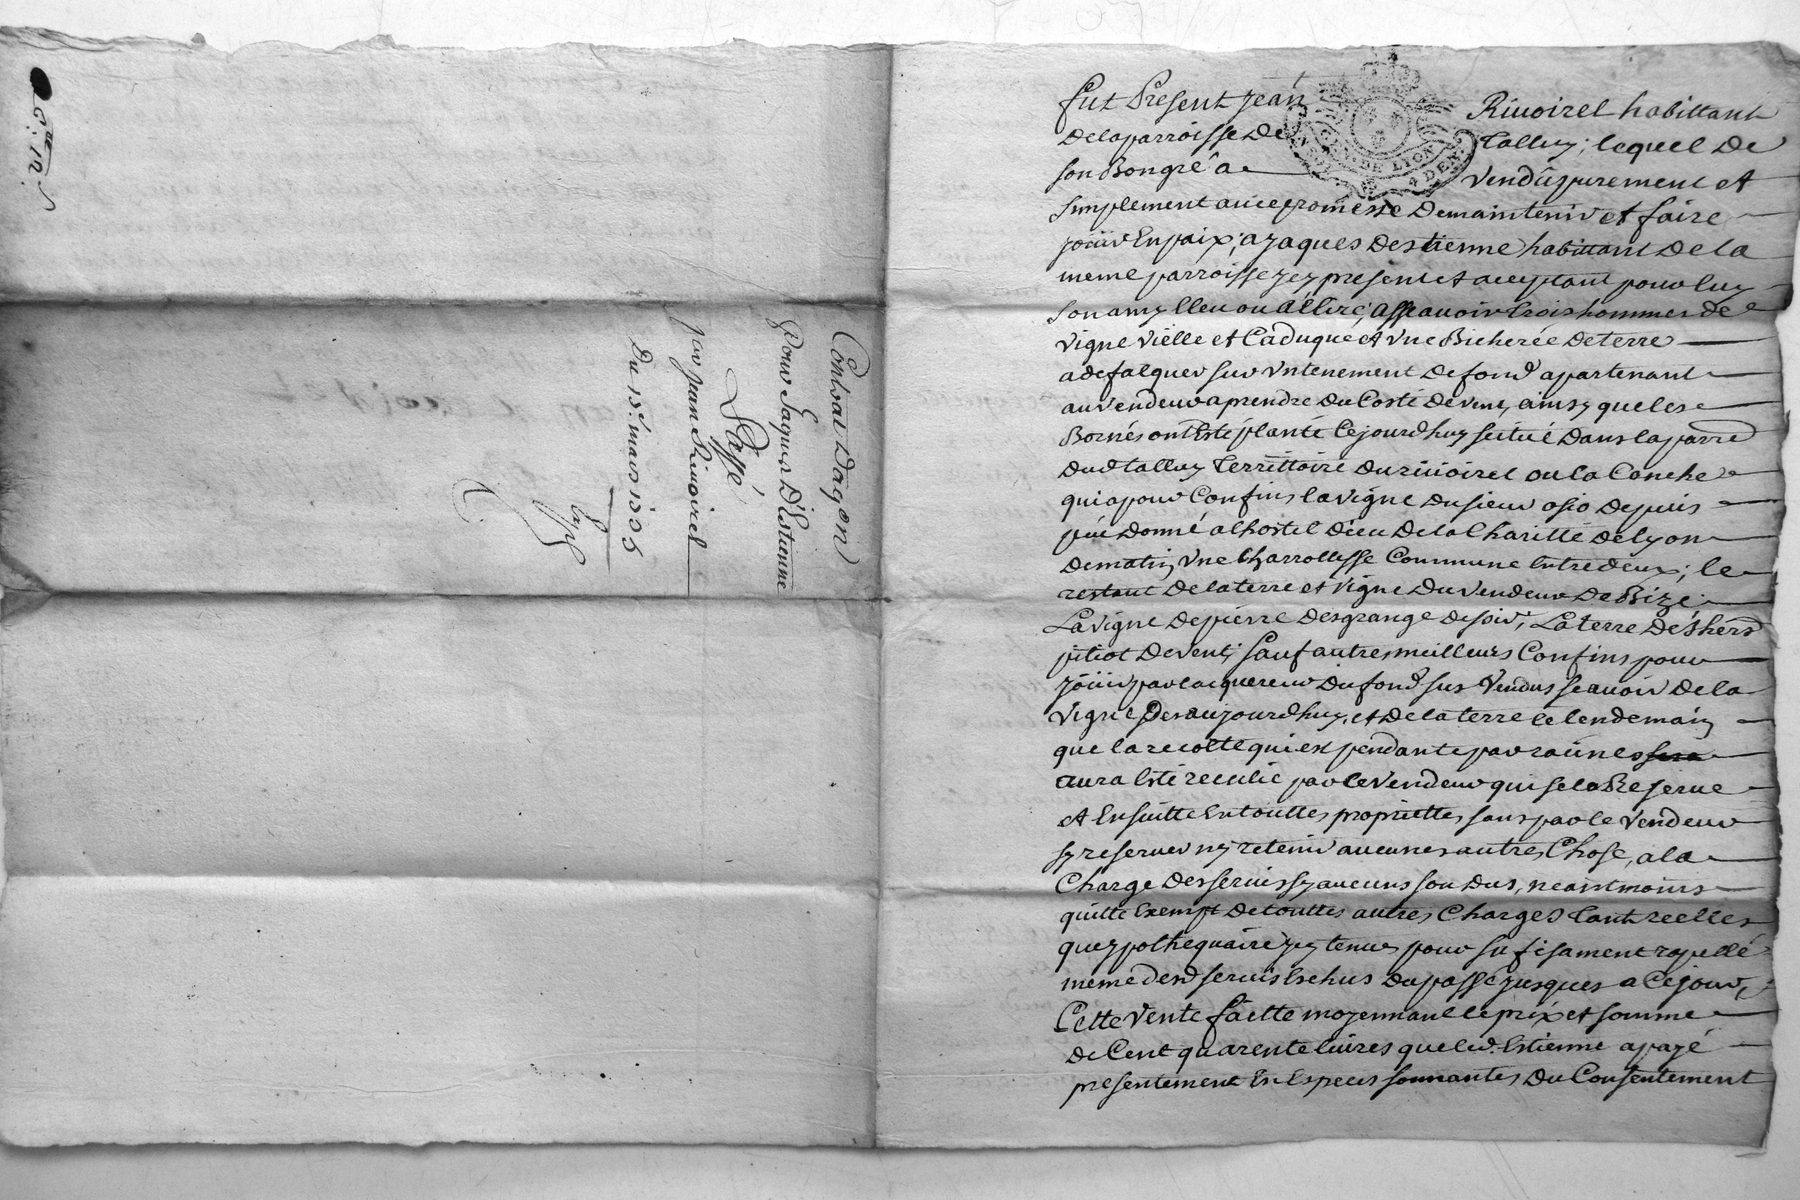 Contrat D'aqon
Pour Jaques D'Estienne
Passé
par Jean Riuoirel
Du 15e. mars 1705
fut Present Jean Riuoirel habittant
Delaparroisse De Talluy; lequel De
son Bongré a vendû purement et
simplement auecpromesse Demaintenir et faire
joüir Enpaix; a Jaques Destienne habittant De la
meme parroisse jcy present et aceptant pour luy
son amy Eleu ou a Ellire; assauoir trois hommes de
vigne vielle et Caduque et vne Bicherée Deterre
adefalquer sur vntenement De fond apartenant
auvendeur aprendre Du Costé De vent, ainsy queles
Bornés ont Esté planté Cejourdhuy scitué Dans laparr.
Dud talluy Territtoire Duriuoirel ou la Conche
qui apour Confins lavigne Dusieur osio Depuis
peu Donné alhostel Dieu Dela Charitté Delyon
Dematin, vne Charrottesse Commune Entredeux; le
restant Delaterre et vigne Du vendeur De Bize;
Lavigne Depierre Desgrange Desoir, La terre Des hers
pitiot Devent; sauf autres meilleurs Confins pour
joüir parlacquereur Dufond sus vendus scauoir De la
vigne Desaujourdhuy, et Delaterre le lendemain
que la recolte qui est pendante par racines sera
aura Esté recullie par le vendeur qui se la Reserue
et Ensuitte Entouttes propriettes sans par le vendeur
sy reseruer ny retenir aucunes autres Chose, a la
Charge Desseruis sy aucuns son Dus, neantmoins
quitte Exempt Detouttes autres Charges tant reelles
queypothequaire jcy tenues pour sufisament rapellé
meme desd seruis Eschus Dupassé jusques a Cejour,
Cette vente faitte moyennant le prix et somme
de Cent quarente liures queled. Estienne apayé
presentement En Especes sonnantes Du Consentement